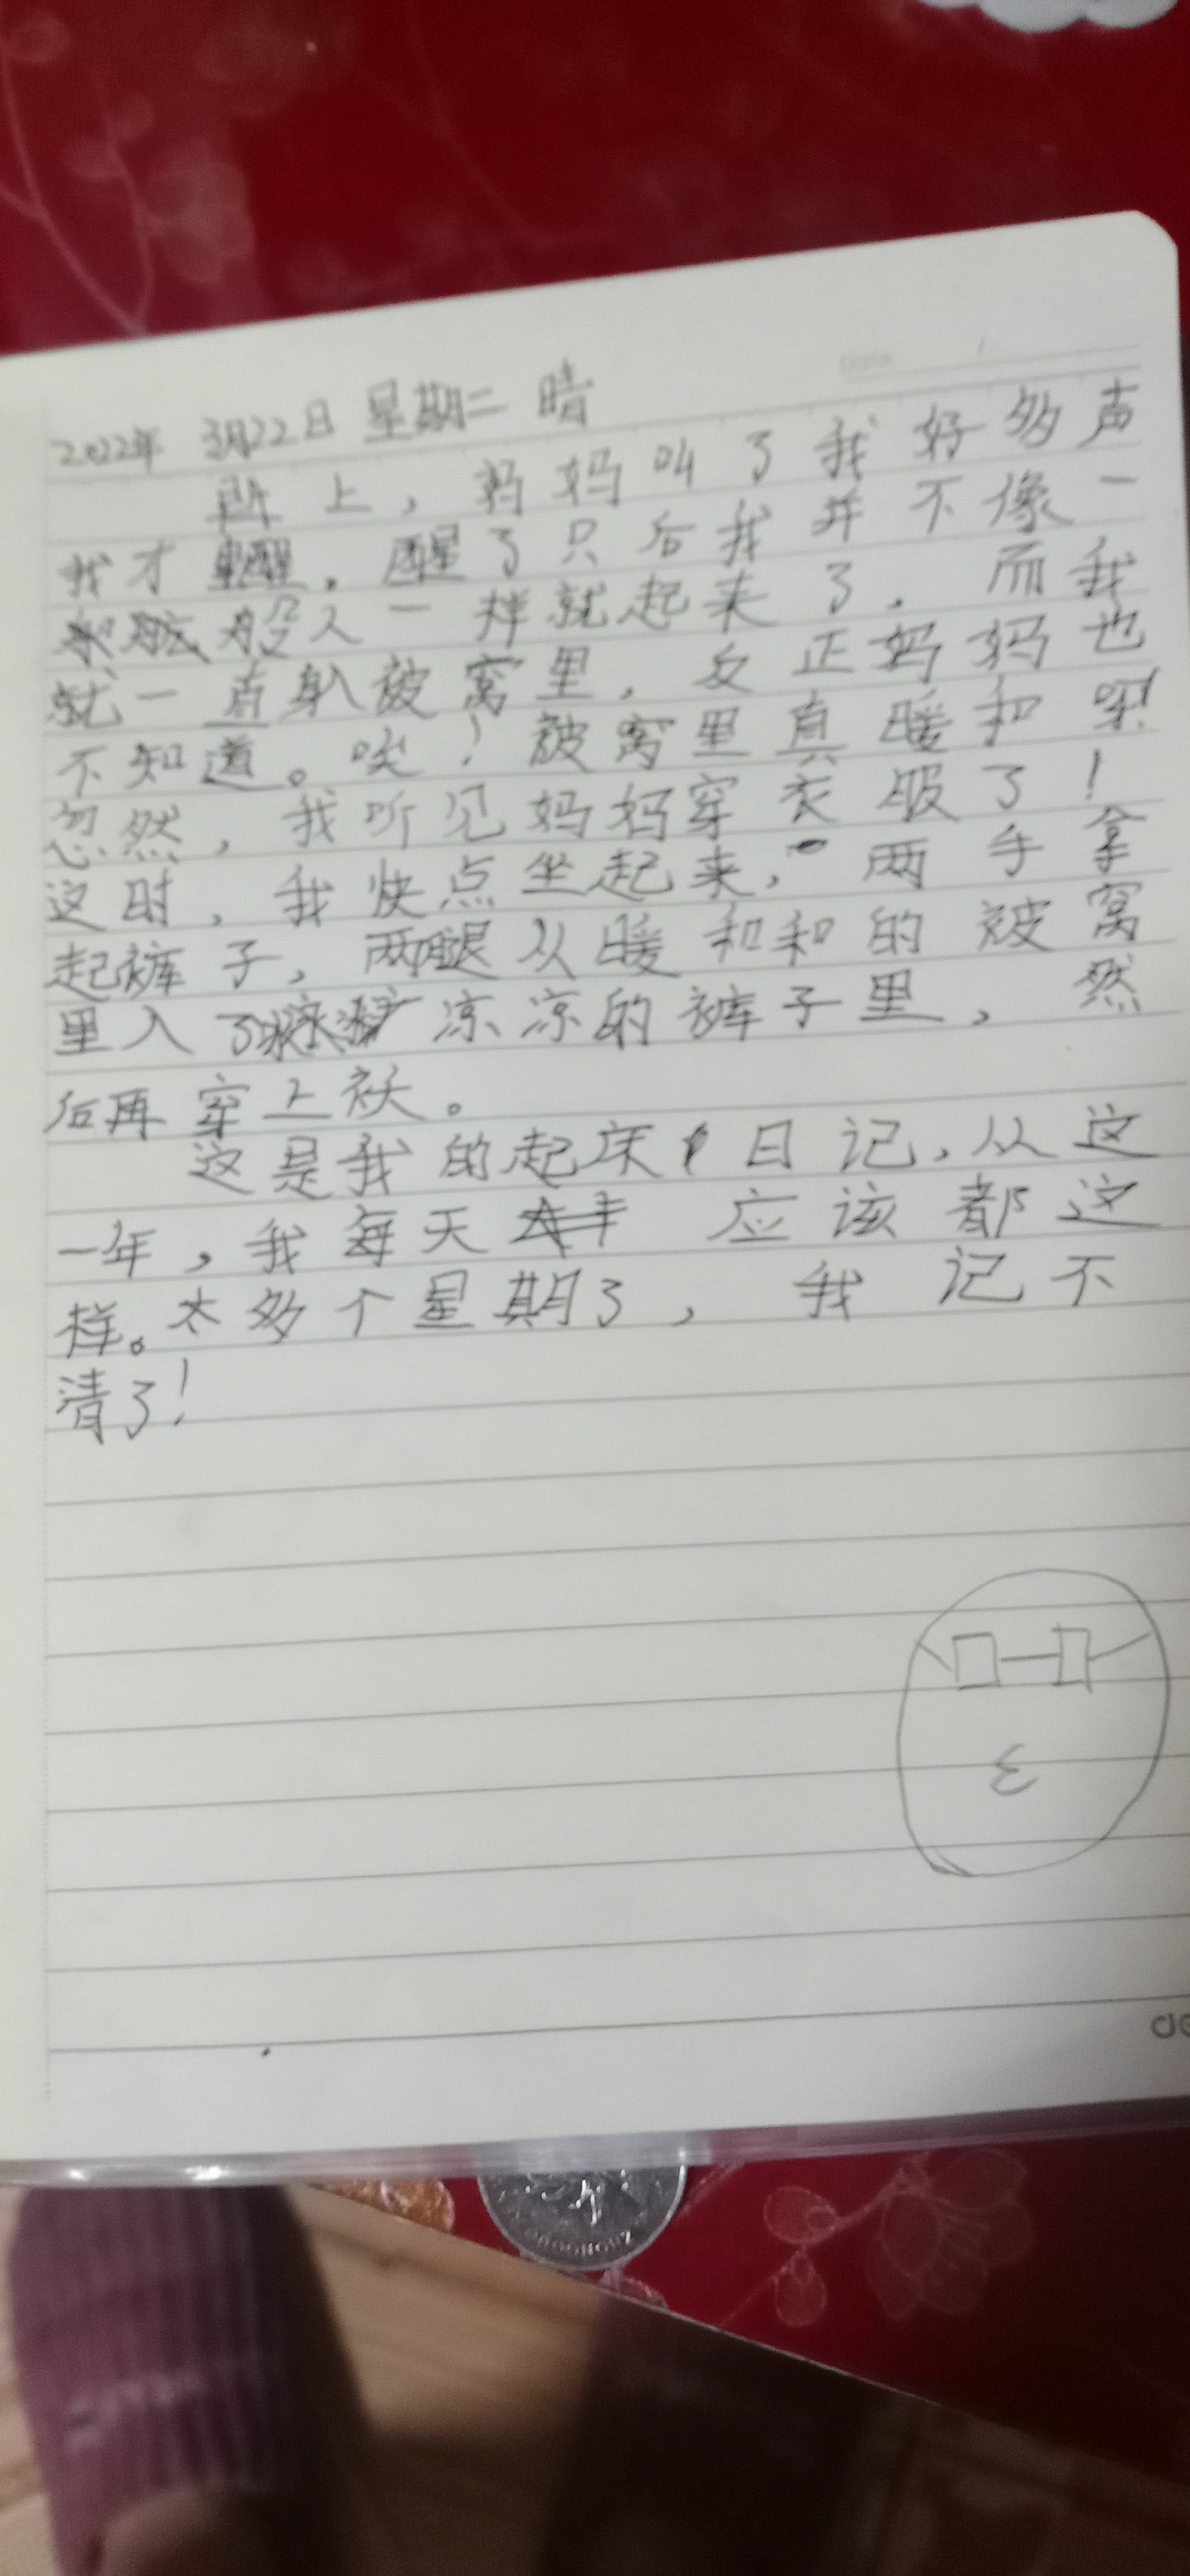 Date
2022年 3月22日 星期二 晴
早上，妈妈叫了我好多声
我才醒。醒了只后我并不像一
般人一样就起来了。而我
就一直趴被窝里，反正妈妈也
不知道。唉！被窝里真暖和呀！
忽然，我听见妈妈穿衣服了！
这时，我快点坐起来，两手拿
起裤子，两腿从暖和和的被窝
里入了凉凉的裤子里，然
后再穿上袄。
这是我的起床日记，从这
一年，我每天应该都这
样。太多个星期了，我记不
清了！
de
ZHONGGUO